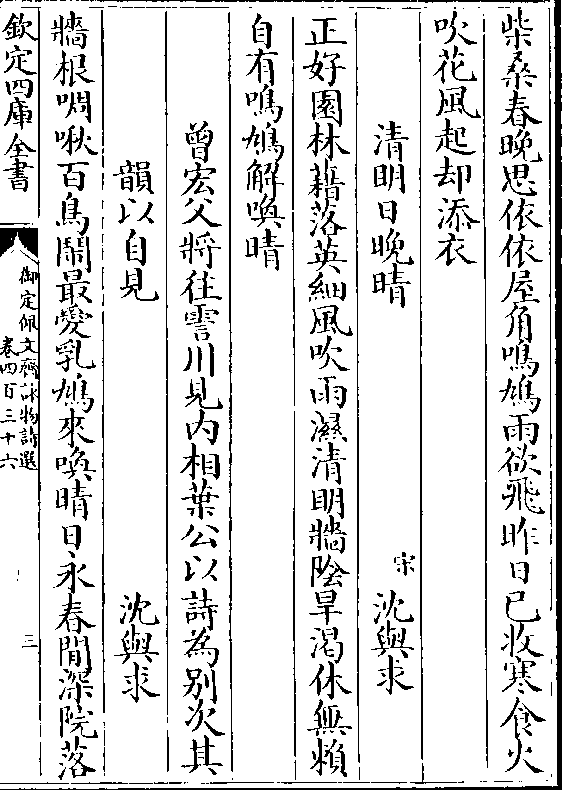 柴桑春晚思依依屋角鳴鳩雨欲飛昨日已收寒食火
吹花風起却添衣
清明日晚晴
宋沈與求
正好園林藉落英細風吹雨濕清明牆陰旱渴休無賴
自有鳴鳩解喚晴
曾宏父將往霅川見内相葉公以詩為别次其
韻以自見
沈與求
牆根啁啾百鳥鬧最愛乳鳩來喚晴日永春閒深院落
欽定四庫全書
御定佩文齋詠物詩選
卷四百三十六
三